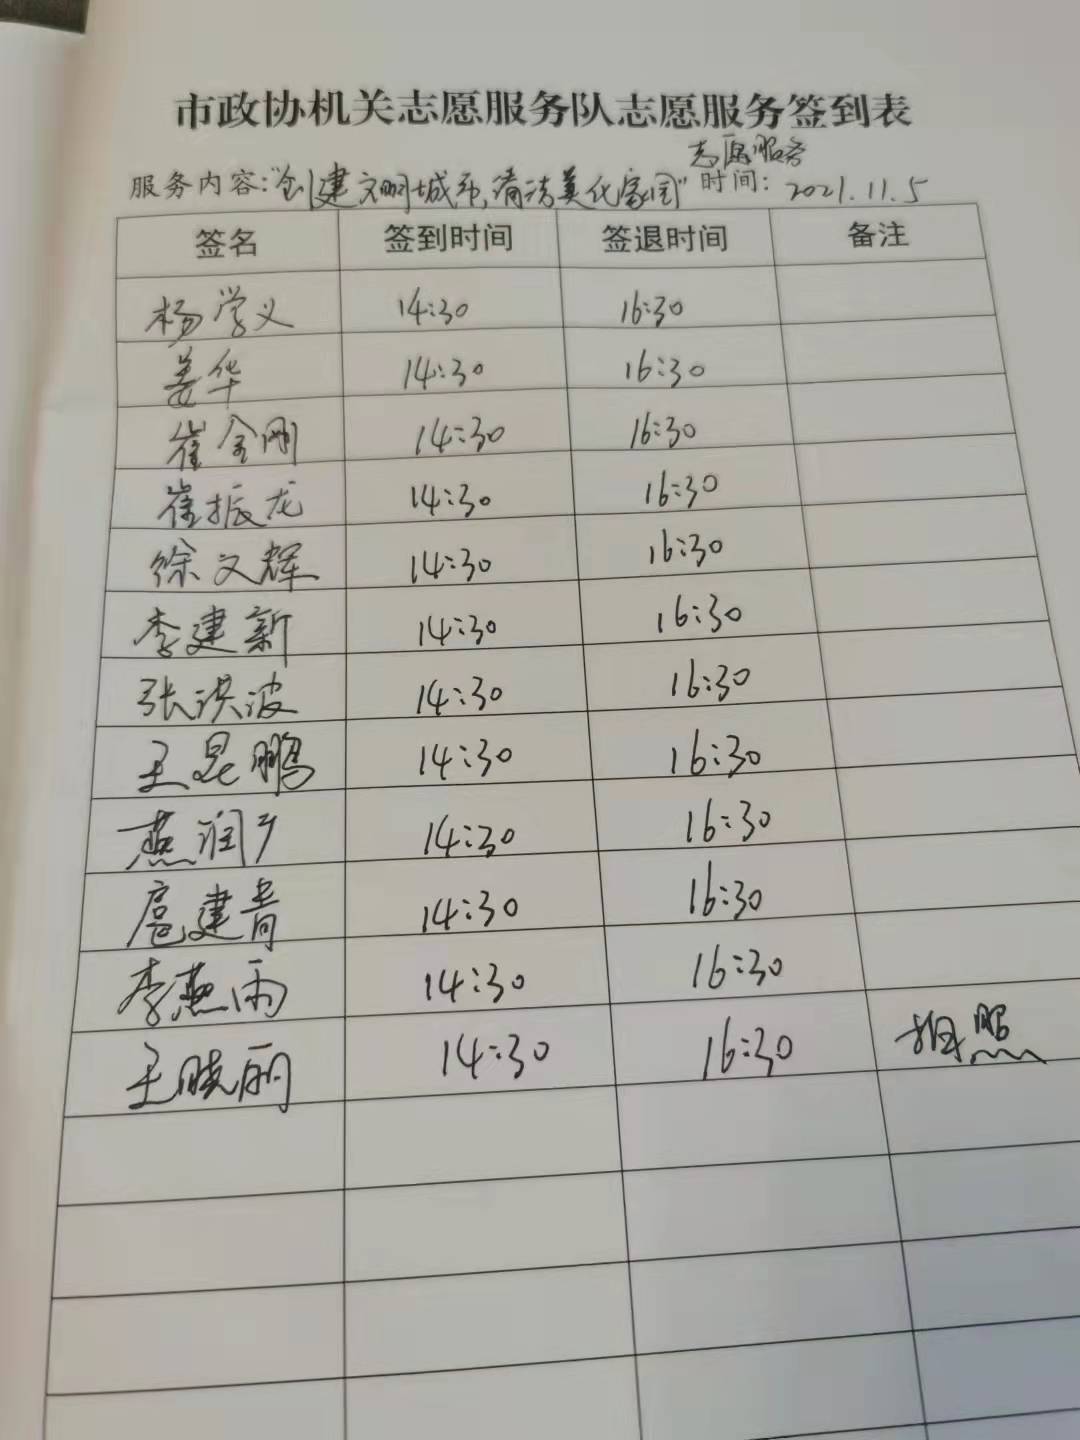 市政协机关志愿服务队志愿服务签到表
志愿服务
服务内容:"创建文明城市,清洁美化家园" 时间: 2021.11.5
签名 签到时间 签退时间 备注
杨学义 14:30 16:30
姜华 14:30 16:30
崔金刚 14:30 16:30
崔振龙 14:30 16:30
徐文辉 14:30 16:30
李建新 14:30 16:30
张洪波 14:30 16:30
王昆鹏 14:30 16:30
燕润 14:30 16:30
扈建青 14:30 16:30
李燕雨 14:30 16:30
王晓丽 14:30 16:30 拍照